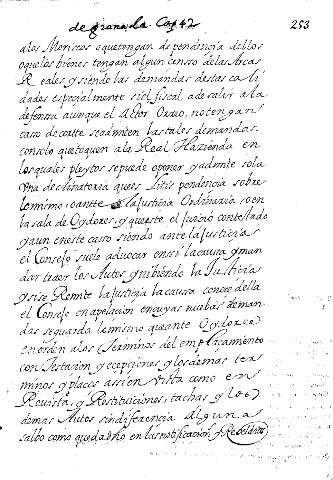 de granada Cap 42 253
alos Moriscos equetengan dependencia dellos
oquelos bienes tengan algun censo delas Arcas
Reales y siendo las demandas destas cali
dades espeçialmente si el fiscal, adesalir ala
defensa aunque el Actor Oxxxo, no tengan
caso de corte se admiten las tales demandas.
consolo quetoquen ala Real Hazienda en
los quales pleytos sepuede oponer y admite sola
Vna declinatoria que es Litis pendencia sobre
lomismo, o ante la Justicia Ordinaria, o en
la sala de Oydores, y que este el Juicio contestado
y aun en este casso siendo ante la Justicia
el Consejo suele advocar en si la causa y man
dar traer los Autos y inhibiendo la Justicia
y si se Remite la Justicia la causa conoce della
el Consejo en apelacion en cuyas nuebas deman
das se guarda lo mismo que ante Oydores
en orden alos terminos del emplaçamiento
contestacion y ecepçiones y los demas ter
minos y placos assi en Vista como en
Revista, y Restituiciones, tachas y los
demas Autos sin diferencia Alguna
salbo como queda dho en las notificaciones y Rebeldias